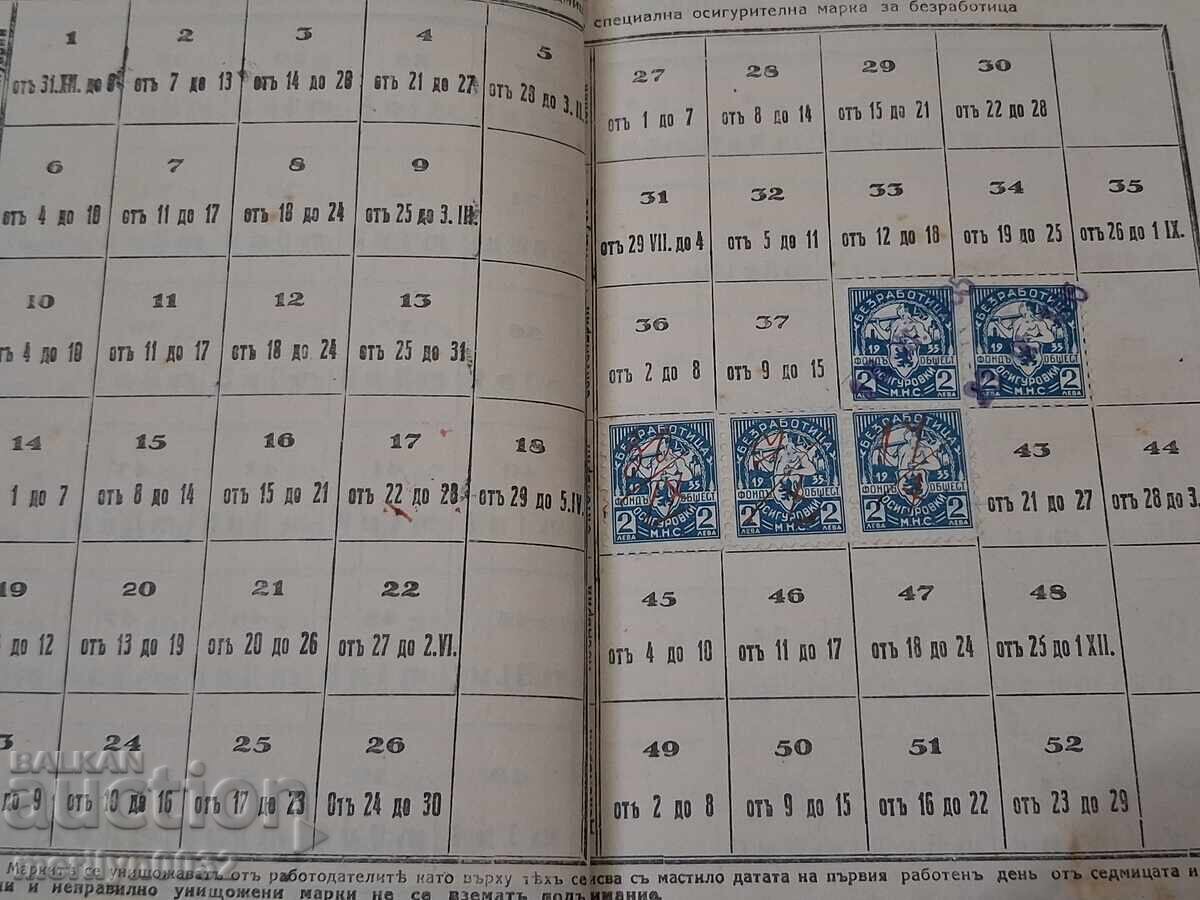 специална осигурителна марка за безработица
1 2 3 4 5
отъ 31.XII. до 6 отъ 7 до 13 отъ 14 до 20 отъ 21 до 27 отъ 28 до 3. II.
6 7 8 9
отъ 4 до 10 отъ 11 до 17 отъ 18 до 24 отъ 25 до 3. III.
10 11 12 13
отъ 4 до 10 отъ 11 до 17 отъ 18 до 24 отъ 25 до 31
14 15 16 17 18
1 до 7 отъ 8 до 14 отъ 15 до 21 отъ 22 до 28 отъ 29 до 5.IV.
19 20 21 22
до 12 отъ 13 до 19 отъ 20 до 26 отъ 27 до 2.VI.
3 24 25 26
до 9 отъ 10 до 16 отъ 17 до 23 отъ 24 до 30
27 28 29 30
отъ 1 до 7 отъ 8 до 14 отъ 15 до 21 отъ 22 до 28
31 32 33 34 35
отъ 29 VII. до 4 отъ 5 до 11 отъ 12 до 18 отъ 19 до 25 отъ 26 до 1 IX.
36 37
отъ 2 до 8 отъ 9 до 15
БЕЗРАБОТИЦА БЕЗРАБОТИЦА
19 35 19 35
ФОНДЪ ОБЩЕСТ ФОНДЪ ОБЩЕСТ
ОСИГУРОВКИ ОСИГУРОВКИ
2 2 2 2
ЛЕВА М.Н.С. ЛЕВА ЛЕВА М.Н.С. ЛЕВА
БЕЗРАБОТИЦА БЕЗРАБОТИЦА БЕЗРАБОТИЦА
ФОНДЪ ОБЩЕСТ ФОНДЪ ОБЩЕСТ ФОНДЪ ОБЩЕСТ
ОСИГУРОВКИ ОСИГУРОВКИ ОСИГУРОВКИ
2 2 2 2 2 2
ЛЕВА М.Н.С. ЛЕВА ЛЕВА М.Н.С. ЛЕВА ЛЕВА М.Н.С. ЛЕВА
43 44
отъ 21 до 27 отъ 28 до 3.
45 46 47 48
отъ 4 до 10 отъ 11 до 17 отъ 18 до 24 отъ 25 до 1 XII.
49 50 51 52
отъ 2 до 8 отъ 9 до 15 отъ 16 до 22 отъ 23 до 29
Маркитѣ се унищожаватъ отъ работодателитѣ като върху тѣхъ се с мастило датата на първия работенъ день отъ седмицата и
ни и неправилно унищожени марки не се взематъ подъ внимание.
BALKAN
auction
merlly.0032